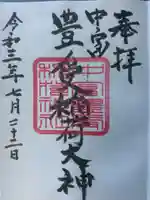 奉拝
中富
豊受稲荷大神
令和三年七月二十二日